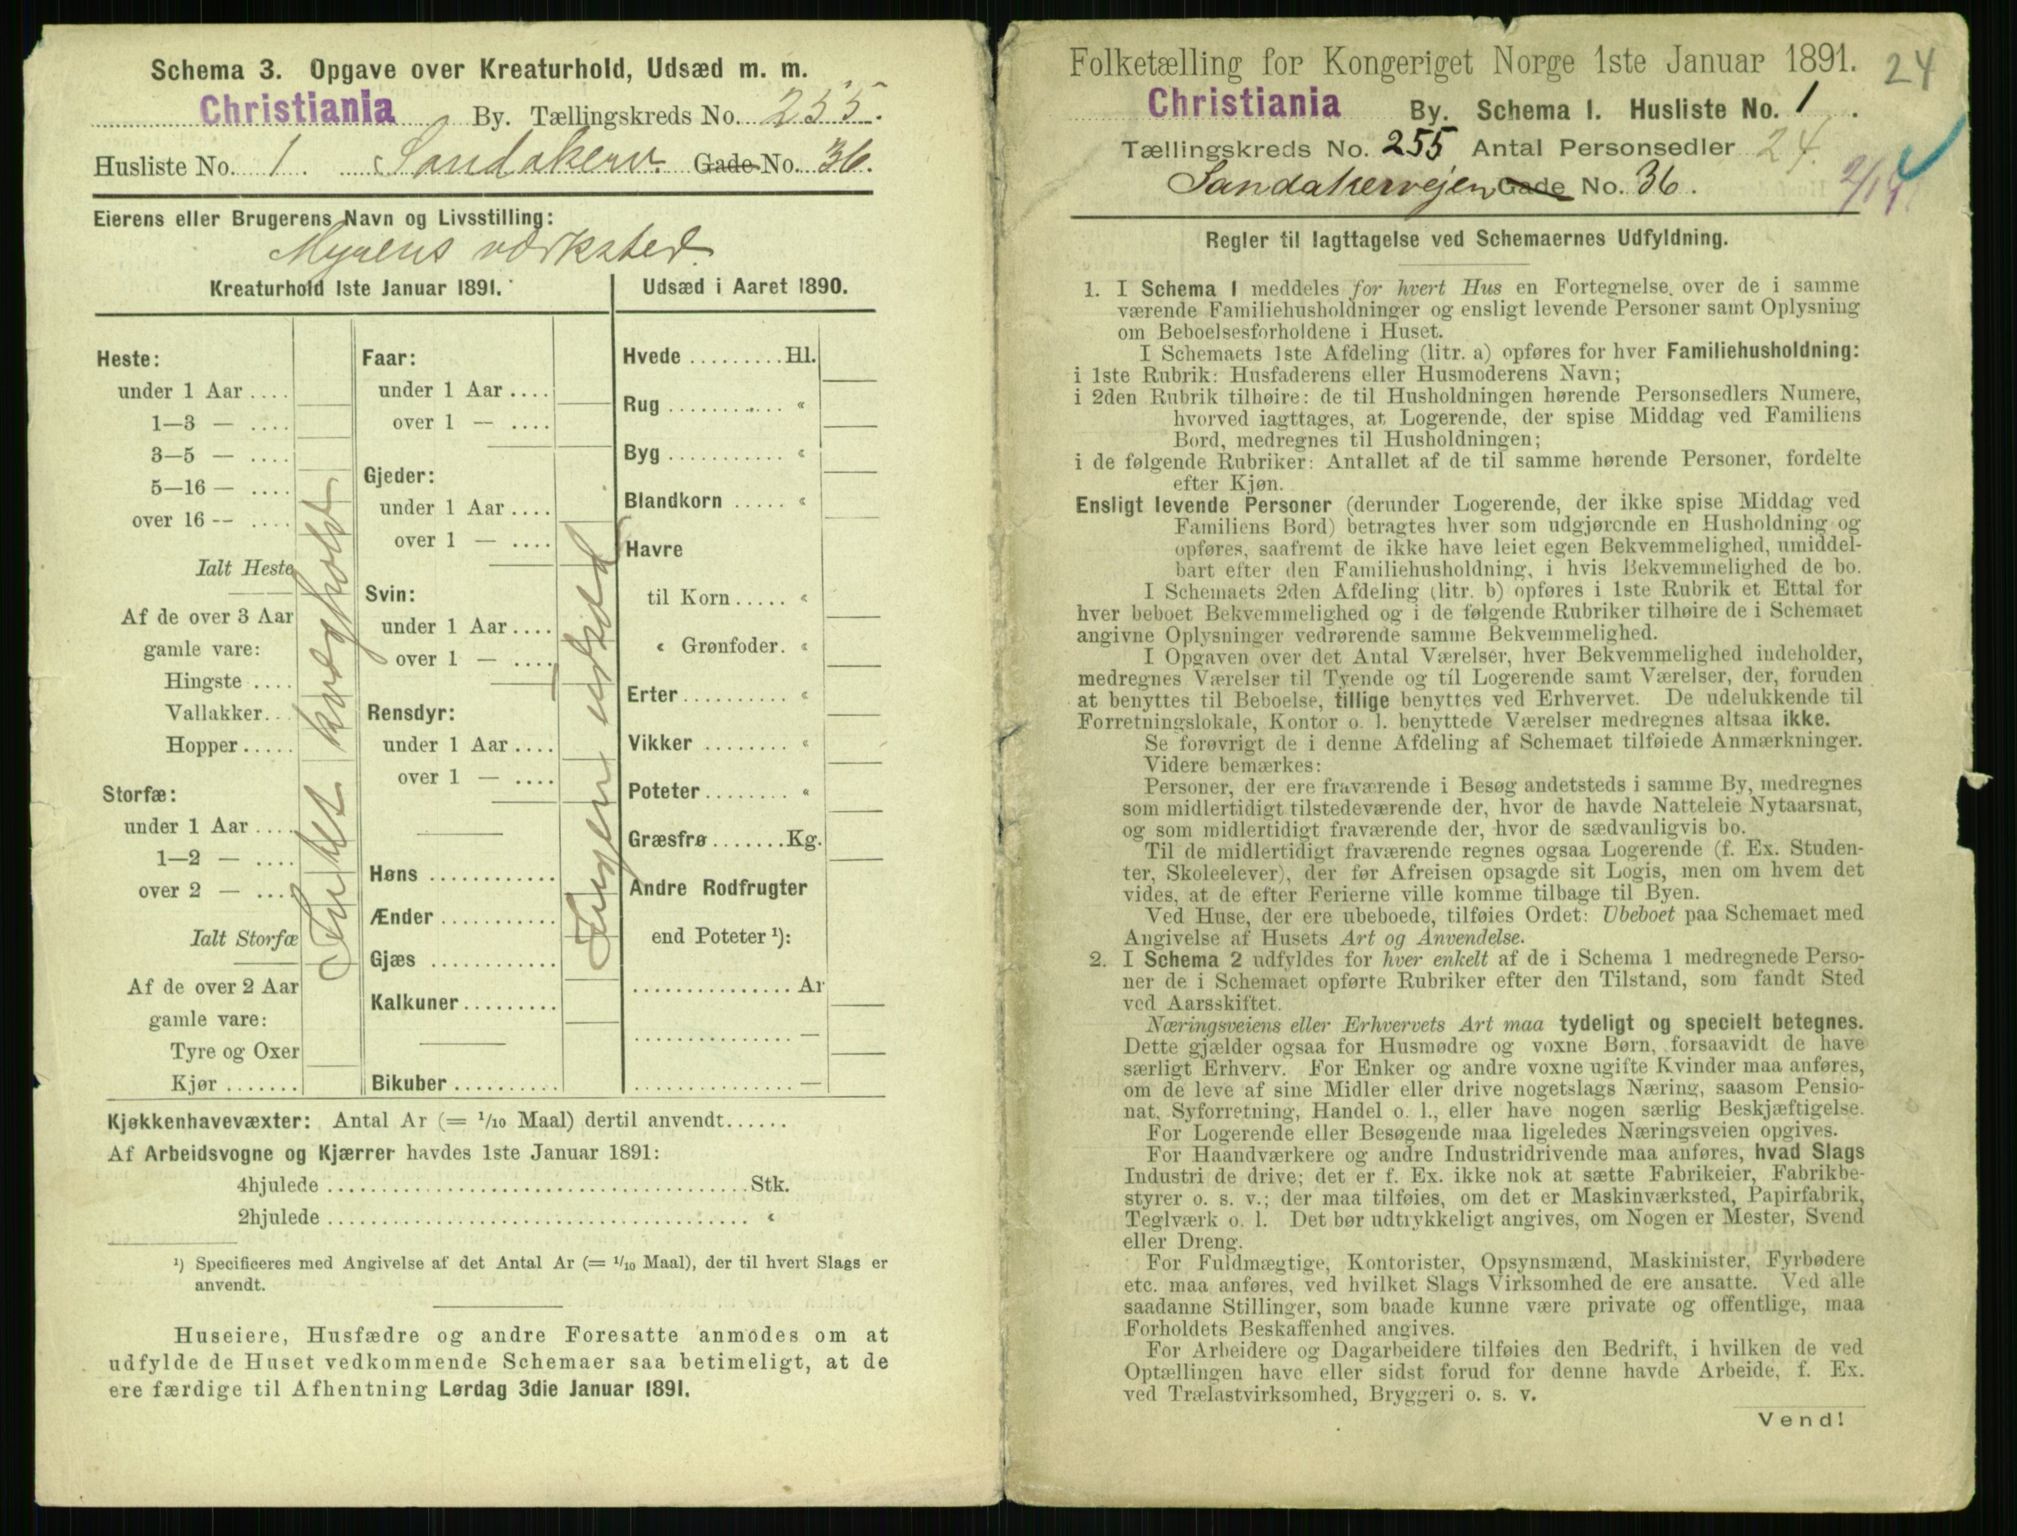 Schema 3. Opgave over Kreaturhold, Udsæd m. m.
Christiania By. Tællingskreds No. 255.
Husliste No. 1. Sandakerv. Gade No. 36.
Eierens eller Brugerens Navn og Livsstilling:
Myrens værksted.
Kreaturhold 1ste Januar 1891.
Heste:
under 1 Aar ....
1—3 — ....
3—5 — ....
5—16 — ....
over 16 -- ....
Ialt Heste
Af de over 3 Aar
gamle vare:
Hingste ....
Vallakker...
Hopper.....
Storfæ:
under 1 Aar ....
1—2 — ....
over 2 — ....
Ialt Storfæ
Af de over 2 Aar
gamle vare:
Tyre og Oxer
Kjør .......
Intet kvæghold
Faar:
under 1 Aar ....
over 1 — ....
Gjeder:
under 1 Aar ....
over 1 — ....
Svin:
under 1 Aar....
over 1 — ....
Rensdyr:
under 1 Aar ....
over 1 — ....
Høns ............
Ænder ...........
Gjæs ............
Kalkuner.........
Bikuber..........
Ingen udsæd
Udsæd i Aaret 1890.
Hvede .........Hl.
Rug ........... «
Byg ........... «
Blandkorn ..... «
Havre
til Korn..... «
« Grønfoder. «
Erter ......... «
Vikker ........ «
Poteter........ «
Græsfrø .......Kg.
Andre Rodfrugter
end Poteter ¹):
............... Ar
............... —
............... —
Kjøkkenhavevæxter: Antal Ar (= 1/10 Maal) dertil anvendt......
Af Arbeidsvogne og Kjærrer havdes 1ste Januar 1891:
4hjulede ........................................Stk.
2hjulede ........................................ «
¹) Specificeres med Angivelse af det Antal Ar (= 1/10 Maal), der til hvert Slags er
anvendt.
Huseiere, Husfædre og andre Foresatte anmodes om at
udfylde de Huset vedkommende Schemaer saa betimeligt, at de
ere færdige til Afhentning Lørdag 3die Januar 1891.
Folketælling for Kongeriget Norge 1ste Januar 1891. 24
Christiania By. Schema 1. Husliste No. 1.
Tællingskreds No. 255 Antal Personsedler 24.
Sandakervejen Gade No. 36.
Regler til Iagttagelse ved Schemaernes Udfyldning.
1. I Schema 1 meddeles for hvert Hus en Fortegnelse over de i samme
værende Familiehusholdninger og ensligt levende Personer samt Oplysning
om Beboelsesforholdene i Huset.
I Schemaets 1ste Afdeling (litr. a) opføres for hver Familiehusholdning:
i 1ste Rubrik: Husfaderens eller Husmoderens Navn;
i 2den Rubrik tilhøire: de til Husholdningen hørende Personsedlers Numere,
hvorved iagttages, at Logerende, der spise Middag ved Familiens
Bord, medregnes til Husholdningen;
i de følgende Rubriker: Antallet af de til samme hørende Personer, fordelte
efter Kjøn.
Ensligt levende Personer (derunder Logerende, der ikke spise Middag ved
Familiens Bord) betragtes hver som udgjørende en Husholdning og
opføres, saafremt de ikke have leiet egen Bekvemmelighed, umiddel-
bart efter den Familiehusholdning, i hvis Bekvemmelighed de bo.
I Schemaets 2den Afdeling (litr. b) opføres i 1ste Rubrik et Ettal for
hver beboet Bekvemmelighed og i de følgende Rubriker tilhøire de i Schemaet
angivne Oplysninger vedrørende samme Bekvemmelighed.
I Opgaven over det Antal Værelser, hver Bekvemmelighed indeholder,
medregnes Værelser til Tyende og til Logerende samt Værelser, der, foruden
at benyttes til Beboelse, tillige benyttes ved Erhvervet. De udelukkende til
Forretningslokale, Kontor o. l. benyttede Værelser medregnes altsaa ikke.
Se forøvrigt de i denne Afdeling af Schemaet tilføiede Anmærkninger.
Videre bemærkes:
Personer, der ere fraværende i Besøg andetsteds i samme By, medregnes
som midlertidigt tilstedeværende der, hvor de havde Natteleie Nytaarsnat,
og som midlertidigt fraværende der, hvor de sædvanligvis bo.
Til de midlertidigt fraværende regnes ogsaa Logerende (f. Ex. Studen-
ter, Skoleelever), der før Afreisen opsagde sit Logis, men om hvem det
vides, at de efter Ferierne ville komme tilbage til Byen.
Ved Huse, der ere ubeboede, tilføies Ordet: Ubeboet paa Schemaet med
Angivelse af Husets Art og Anvendelse.
2. I Schema 2 udfyldes for hver enkelt af de i Schema 1 medregnede Perso-
ner de i Schemaet opførte Rubriker efter den Tilstand, som fandt Sted
ved Aarsskiftet.
Næringsveiens eller Erhvervets Art maa tydeligt og specielt betegnes.
Dette gjælder ogsaa for Husmødre og voxne Børn, forsaavidt de have
særligt Erhverv. For Enker og andre voxne ugifte Kvinder maa anføres,
om de leve af sine Midler eller drive nogetslags Næring, saasom Pensio-
nat, Syforretning, Handel o. l., eller have nogen særlig Beskjæftigelse.
For Logerende eller Besøgende maa ligeledes Næringsveien opgives.
For Haandværkere og andre Industridrivende maa anføres, hvad Slags
Industri de drive; det er f. Ex. ikke nok at sætte Fabrikeier, Fabrikbe-
styrer o. s. v.; der maa tilføies, om det er Maskinværksted, Papirfabrik,
Teglværk o. l. Det bør udtrykkeligt angives, om Nogen er Mester, Svend
eller Dreng.
For Fuldmægtige, Kontorister, Opsynsmænd, Maskinister, Fyrbødere
etc. maa anføres, ved hvilket Slags Virksomhed de ere ansatte. Ved alle
saadanne Stillinger, som baade kunne være private og offentlige, maa
Forholdets Beskaffenhed angives.
For Arbeidere og Dagarbeidere tilføies den Bedrift, i hvilken de ved
Optællingen have eller sidst forud for denne havde Arbeide, f. Ex.
ved Trælastvirksomhed, Bryggeri o. s. v.
Vend!